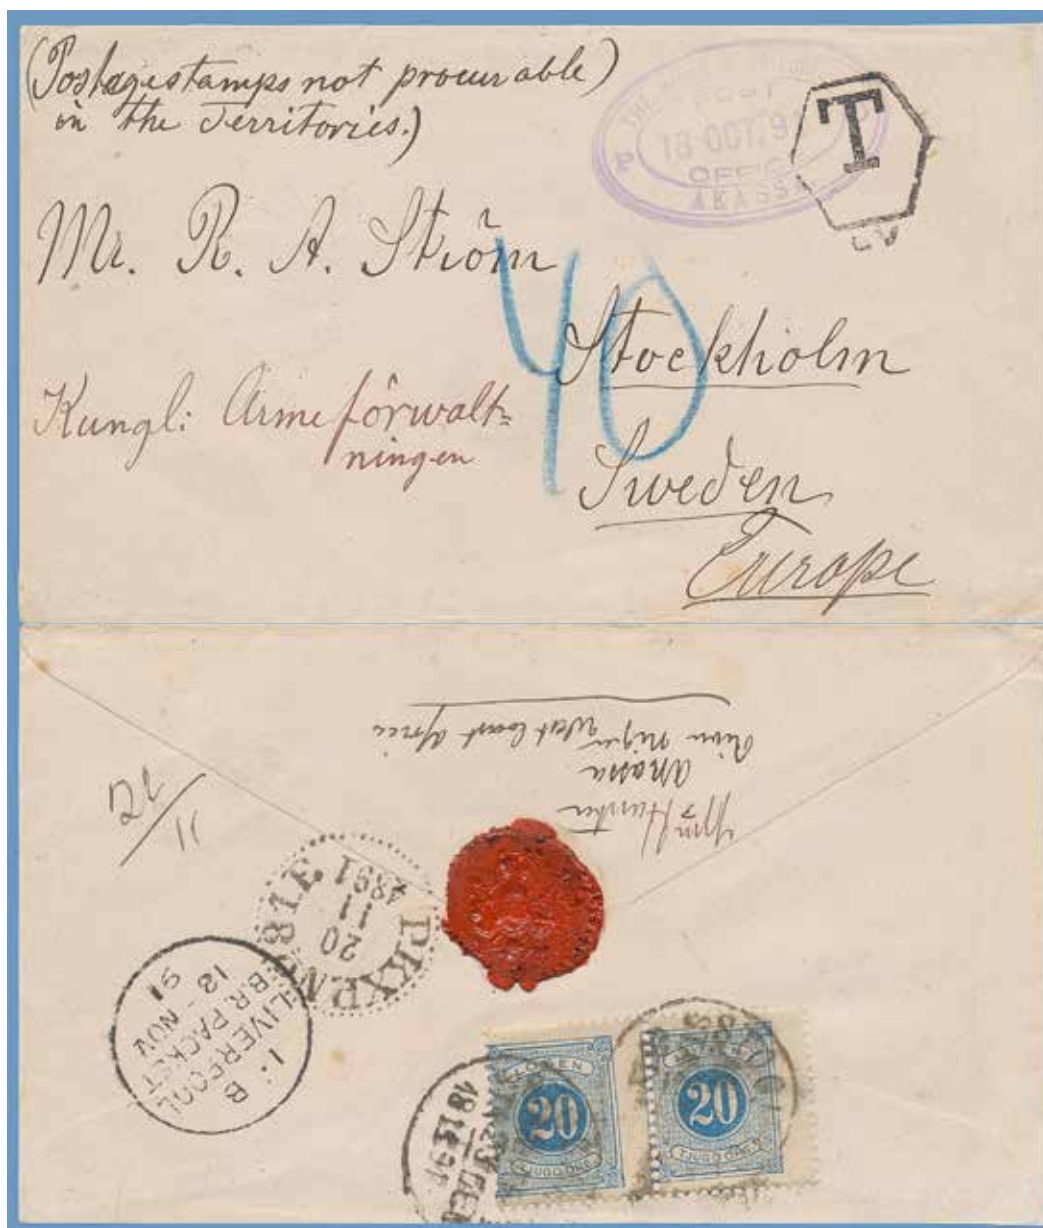 (Postagestamps not procurable)
in the Territories.)
THE
POST
18 OCT. 9
OFFICE
AKASSA
T
Mr. R. A. Ström
40
Stockholm
Kungl: Armeförwalt=
ningen
Sweden
Europe
Hunter
Akassa
River Niger
West Coast Africa
22/11
PKXP.Nº81.E.
20
11
1891
B
LIVERPOOL
BR PACKET
18 NOV
91
LÖSEN
20
TJUGO ÖRE
20
TJUGO ÖRE